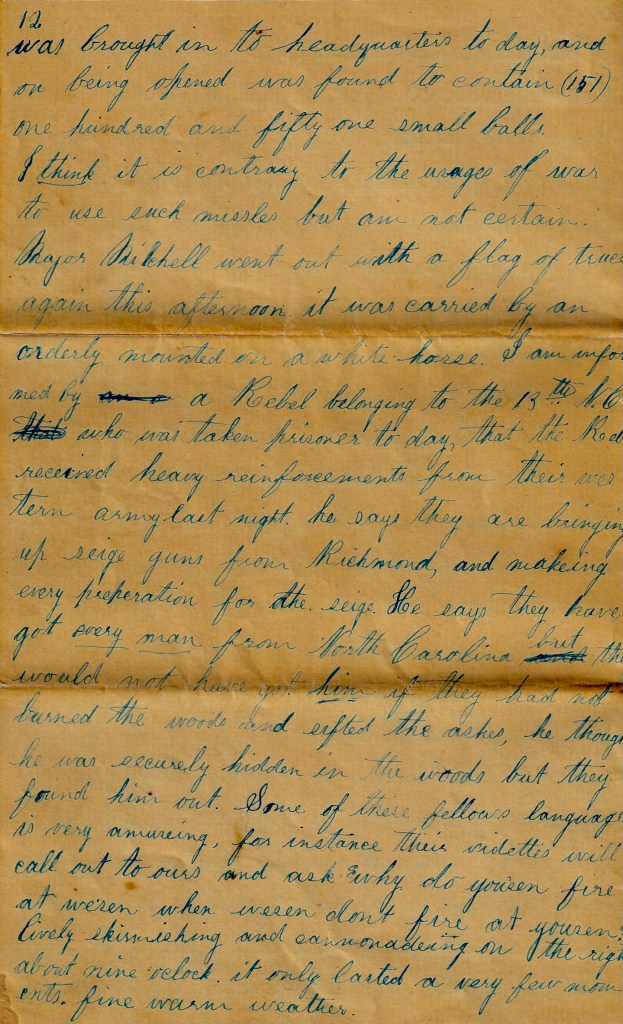 12
was brought in to headquarters to day, and
on being opened was found to contain (151)
one hundred and fifty one small balls.
I think it is contrary to the usages of war
to use such missles but am not certain.
Major Mitchell went out with a flag of truce
again this afternoon. it was carried by an
orderly mounted on a white horse. I am infor
med by a Rebel belonging to the 13th N.C.
who was taken prisoner to day, that the Reb
received heavy reinforcements from their wes
tern army last night. he says they are bringing
up seige guns from Richmond, and makeing
every preperation for the seige. He says they have
got every man from North Carolina but the
would not have got him if they had not
burned the woods and sifted the ashes, he though
he was securely hidden in the woods but they
found him out. Some of these fellows language
is very amuseing, for instance their videttes will
call out to ours and ask "why do yousen fire
at wesen when wesen dont fire at yousen?
lively skirmishing and cannonadeing on the righ
about nine oclock. it only lasted a very few mom
ents. fine warm weather.